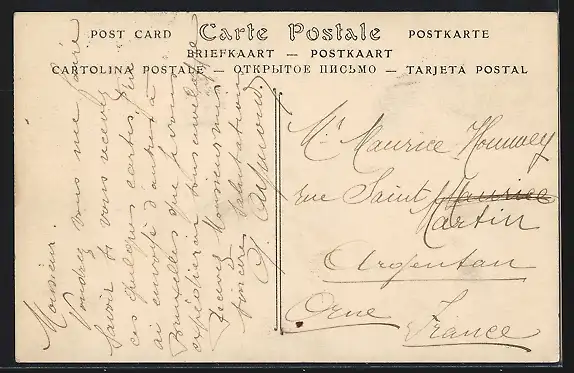 POST CARD Carte Postale POSTKARTE
BRIEFKAART — POSTKAART
CARTOLINA POSTALE — ОТКРЫТОЕ ПИСЬМО — TARJETA POSTAL
Monsieur.
Voudrez vous me faire
savoir si vous recevez
ces quelques cartes que
ai envoyé d'autres à
Bruxelles que pour
expédier sous enveloppe
Recevez Monsieur mes
sincères salutations
Mr Maurice
rue Saint Maurice
Martin
Argentan
Orne France